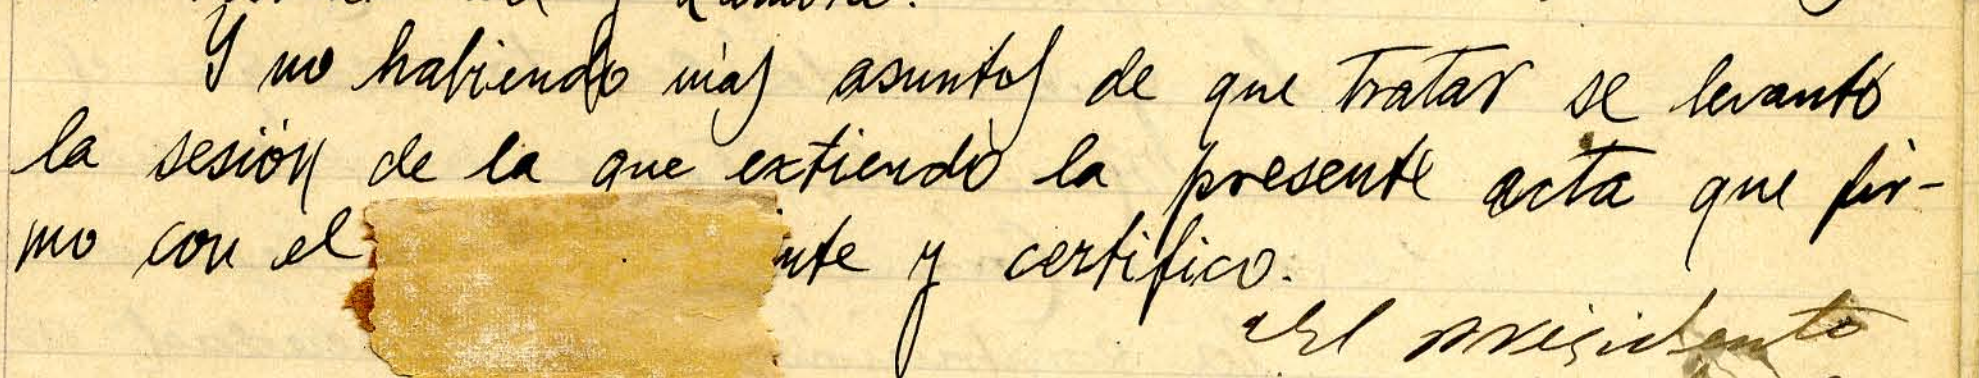 Y no habiendo más asuntos de que tratar se levantó
la sesión de la que extiendo la presente acta que fir-
mo con el nte y certifico.
El presidente